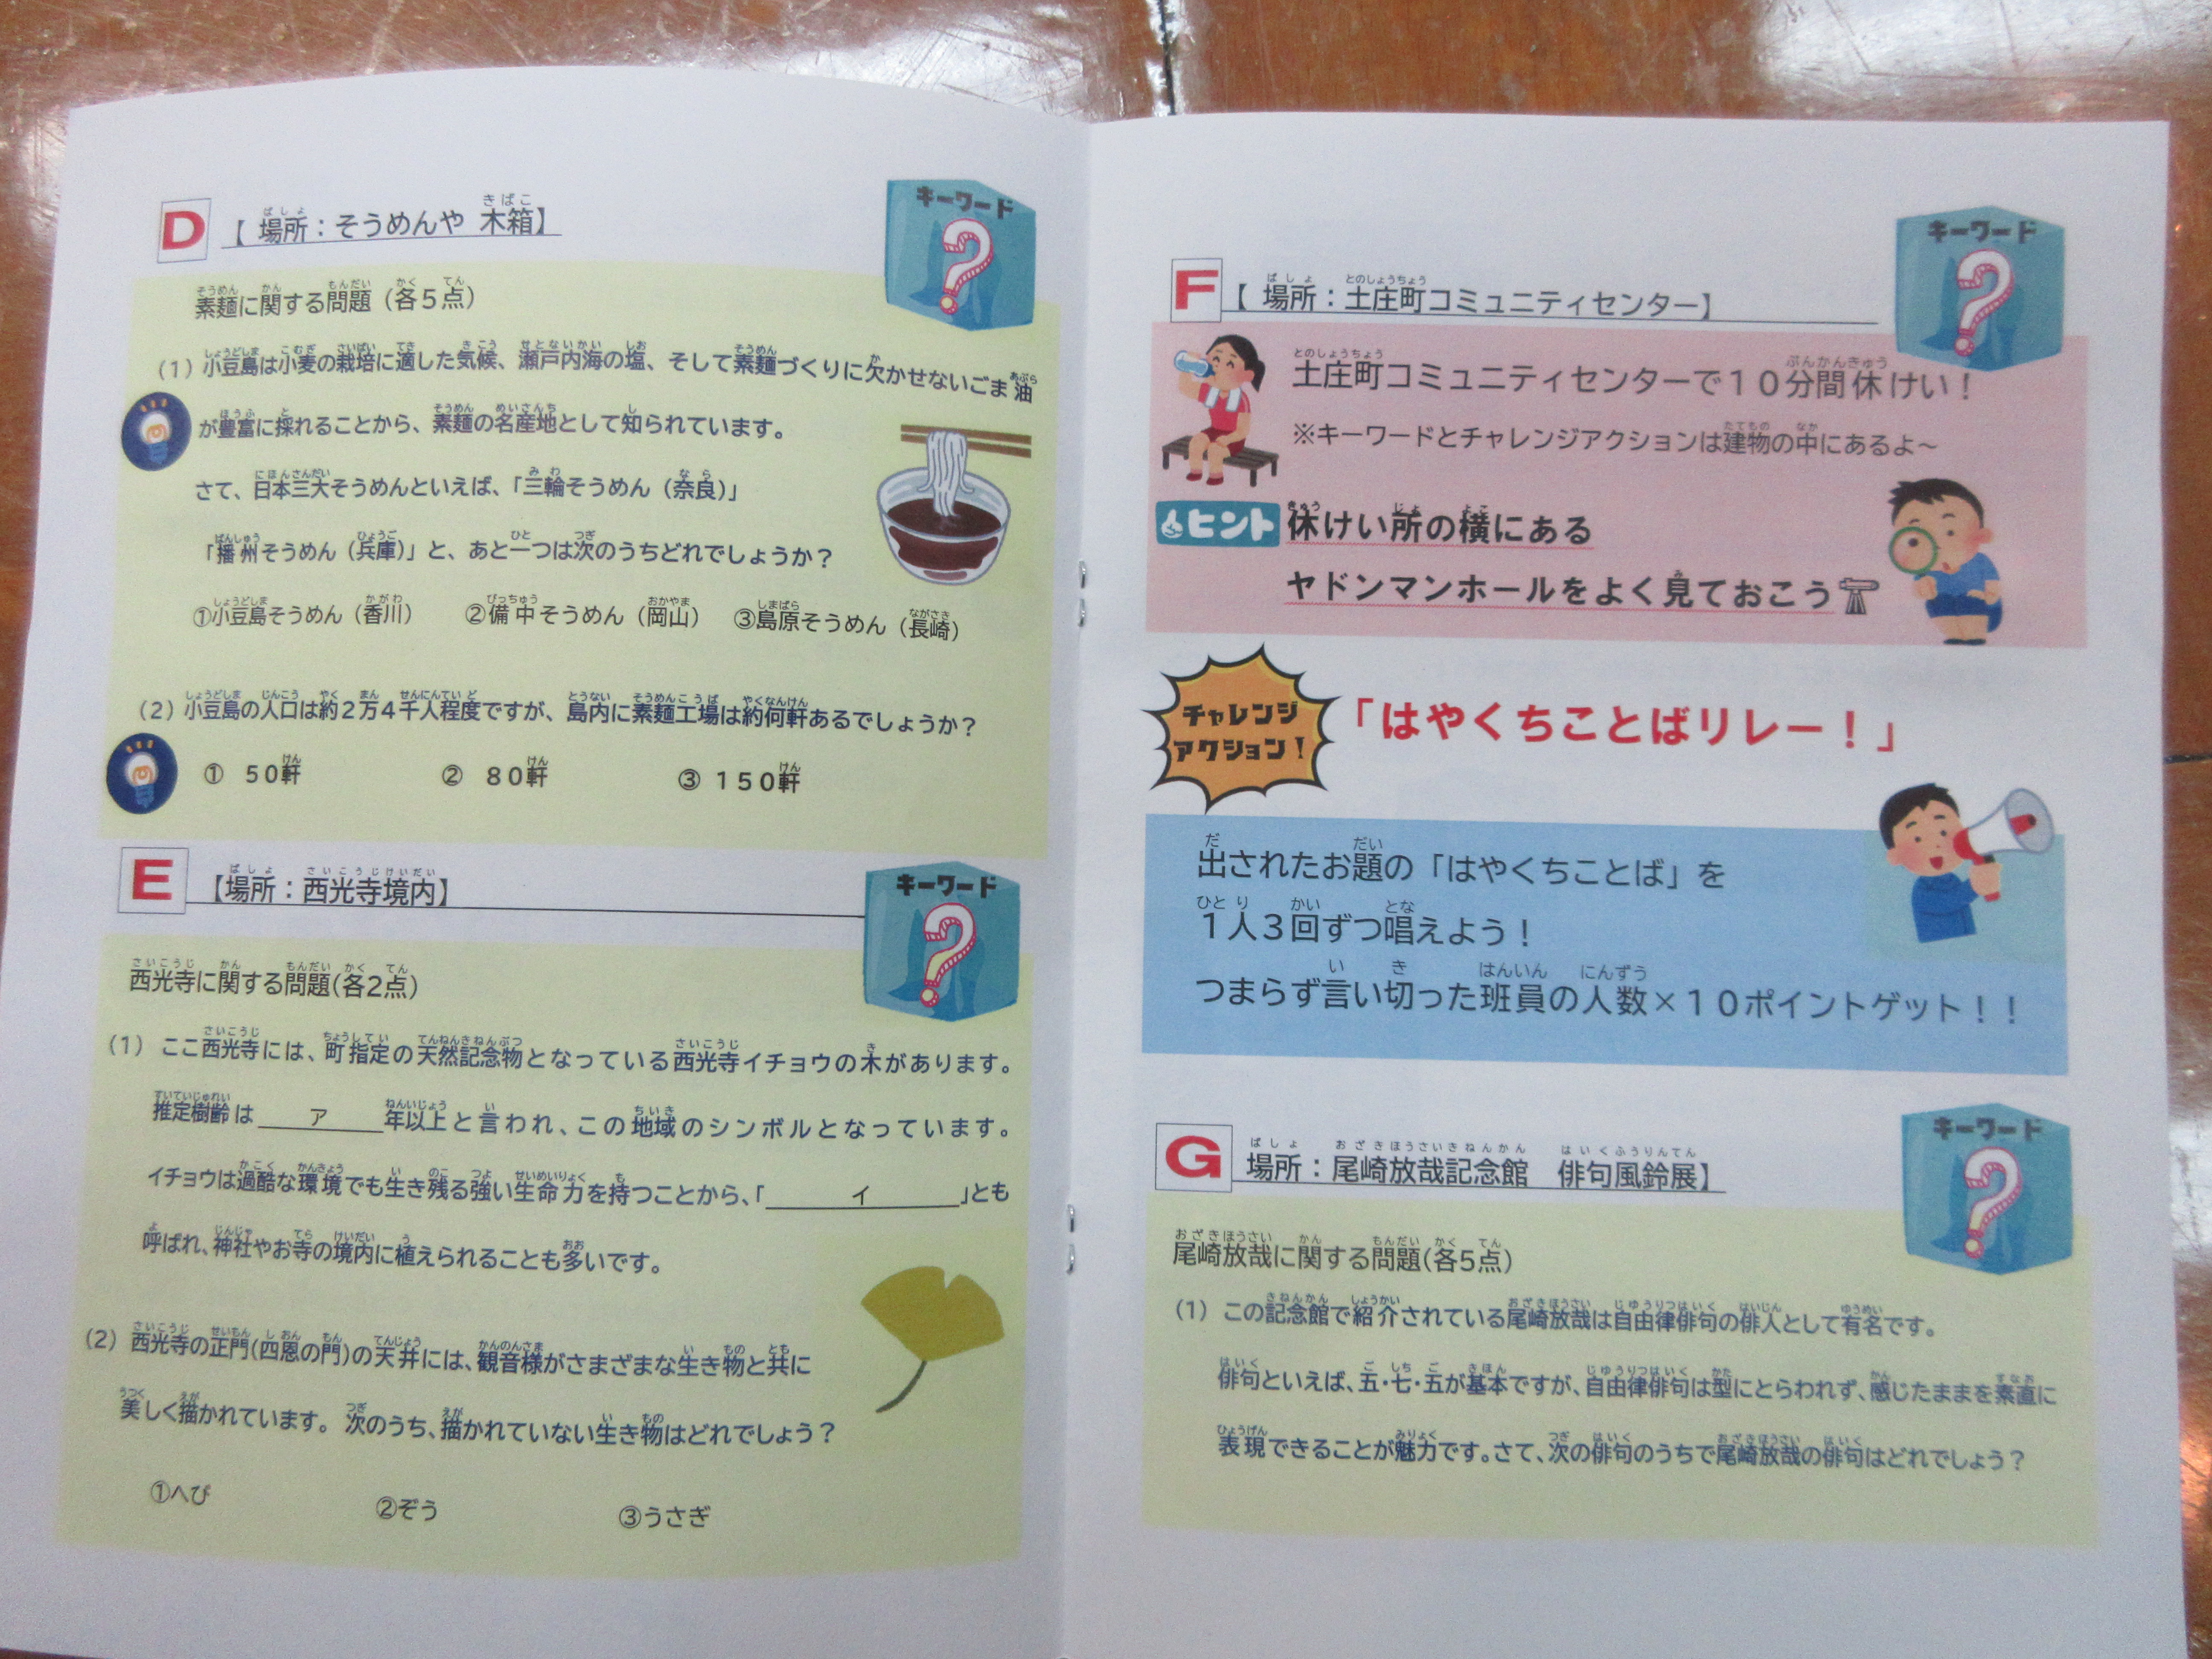 D 【 場所：そうめんや 木箱】
キーワード
?
素麺に関する問題（各５点）
（1）小豆島は小麦の栽培に適した気候、瀬戸内海の塩、そして素麺づくりに欠かせないごま油
が豊富に採れることから、素麺の名産地として知られています。
さて、日本三大そうめんといえば、「三輪そうめん（奈良）」
「播州そうめん（兵庫）」と、あと一つは次のうちどれでしょうか？
①小豆島そうめん（香川） ②備中そうめん（岡山） ③島原そうめん（長崎）
（2）小豆島の人口は約２万４千人程度ですが、島内に素麺工場は約何軒あるでしょうか？
① ５０軒 ② ８０軒 ③ １５０軒
E 【場所：西光寺境内】
キーワード
?
西光寺に関する問題(各2点)
（1） ここ西光寺には、町指定の天然記念物となっている西光寺イチョウの木があります。
推定樹齢は＿＿ア＿＿年以上と言われ、この地域のシンボルとなっています。
イチョウは過酷な環境でも生き残る強い生命力を持つことから、「＿＿＿イ＿＿＿」とも
呼ばれ、神社やお寺の境内に植えられることも多いです。
（2） 西光寺の正門(四恩の門)の天井には、観音様がさまざまな生き物と共に
美しく描かれています。 次のうち、描かれていない生き物はどれでしょう？
①へび ②ぞう ③うさぎ
F 【 場所：土庄町コミュニティセンター】
キーワード
?
土庄町コミュニティセンターで１０分間休けい！
※キーワードとチャレンジアクションは建物の中にあるよ～
ヒント 休けい所の横にある
ヤドンマンホールをよく見ておこう
チャレンジ
アクション！
「はやくちことばリレー！」
出されたお題の「はやくちことば」を
１人３回ずつ唱えよう！
つまらず言い切った班員の人数×１０ポイントゲット！！
G 場所：尾崎放哉記念館　俳句風鈴展】
キーワード
?
尾崎放哉に関する問題(各5点)
（1） この記念館で紹介されている尾崎放哉は自由律俳句の俳人として有名です。
俳句といえば、五・七・五が基本ですが、自由律俳句は型にとらわれず、感じたままを素直に
表現できることが魅力です。さて、次の俳句のうちで尾崎放哉の俳句はどれでしょう？